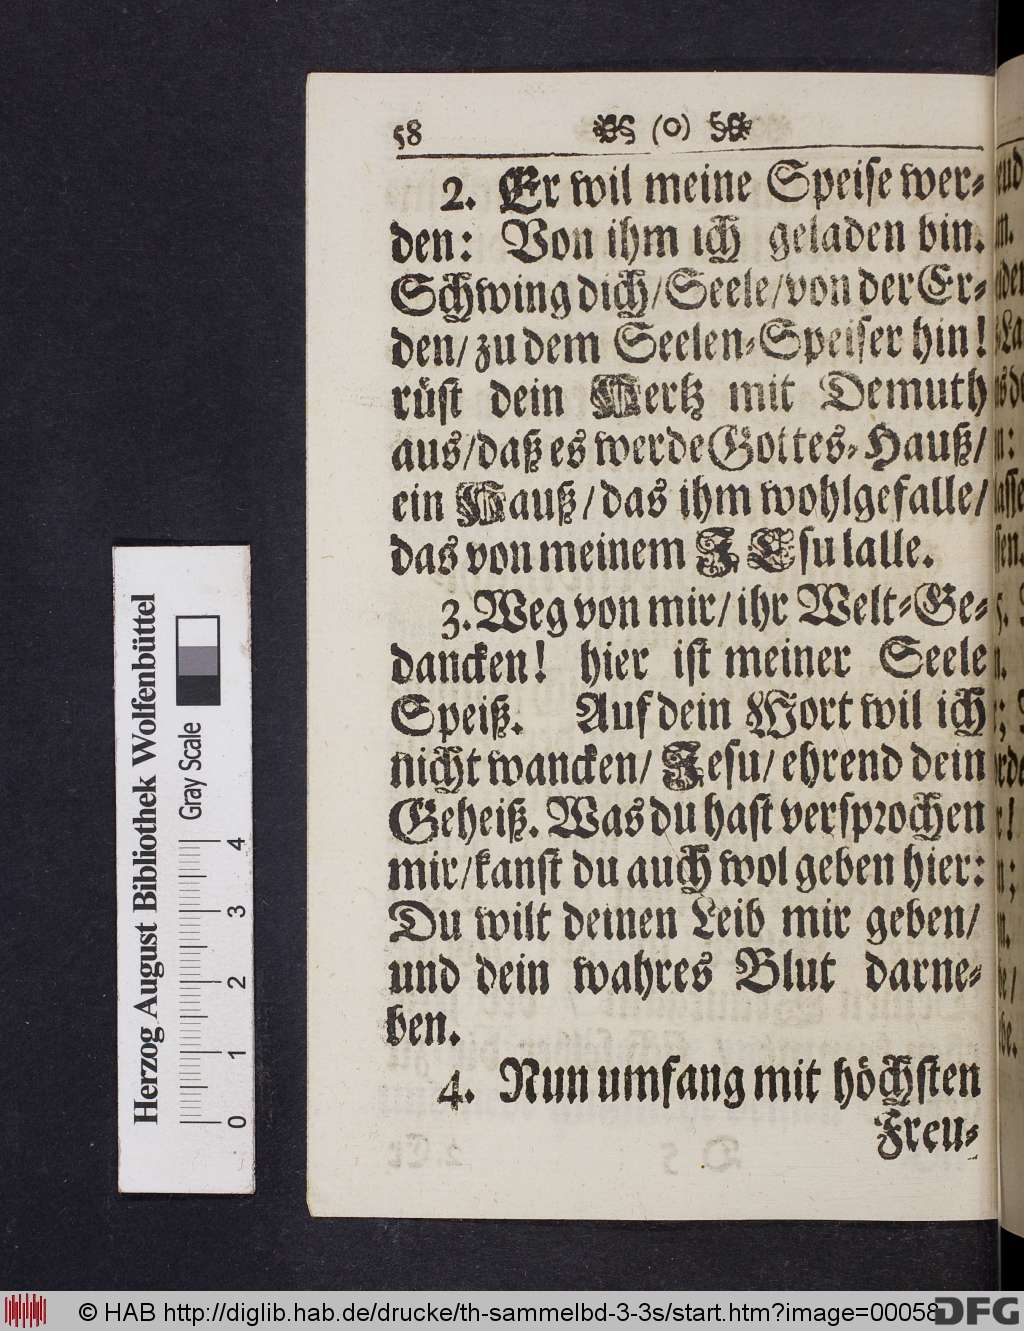 58 (o)
2. Er wil meine Speise wer-
den: Von ihm ich geladen bin.
Schwing dich/Seele/von der Er-
den/zu dem Seelen-Speiser hin!
rüst dein Hertz mit Demuth
aus/daß es werde Gottes-Hauß/
ein Hauß/das ihm wohlgefalle/
das von meinem JEsu lalle.
3. Weg von mir/ihr Welt-Ge-
dancken! hier ist meiner Seele
Speiß. Auf dein Wort wil ich
nicht wancken/Jesu/ehrend dein
Geheiß. Was du hast versprochen
mir/kanst du auch wol geben hier:
Du wilt deinen Leib mir geben/
und dein wahres Blut darne-
ben.
4. Nun umfang mit höchsten
Freu-
Herzog August Bibliothek Wolfenbüttel
Gray Scale
0 1 2 3 4
© HAB http://diglib.hab.de/drucke/th-sammelbd-3-3s/start.htm?image=00058
DFG